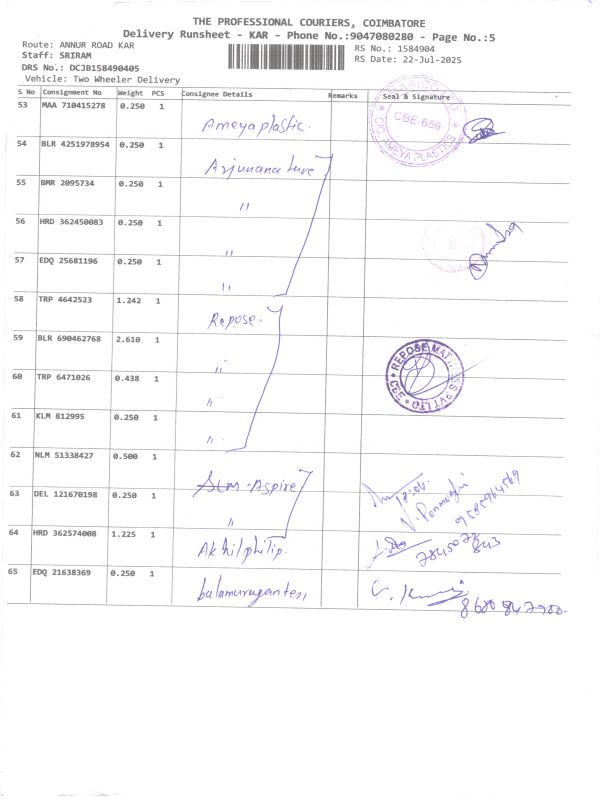 THE PROFESSIONAL COURIERS, COIMBATORE
Delivery Runsheet - KAR - Phone No.:9047080280 - Page No.:5
Route: ANNUR ROAD KAR
RS No.: 1584904
Staff: SRIRAM
RS Date: 22-Jul-2025
DRS No.: DCJB158490405
Vehicle: Two Wheeler Delivery
S No Consignment No Weight PCS Consignee Details Remarks Seal & Signature
53 MAA 710415278 0.250 1 Ameya plastic.
CBE-659
54 BLR 4251978954 0.250 1
55 BMR 2095734 0.250 1 "
56 HRD 362450083 0.250 1 "
57 EDQ 25681196 0.250 1 "
58 TRP 4642523 1.242 1 Repose.
59 BLR 690462768 2.610 1 "
REPOSE MATTRESS PVT LTD
CBE
60 TRP 6471026 0.438 1 "
61 KLM 812995 0.250 1 "
62 NLM 51338427 0.500 1 Slm-Aspire
63 DEL 121670198 0.250 1 "
9585964569
64 HRD 362574008 1.225 1 Akhilphilip.
65 EDQ 21638369 0.250 1